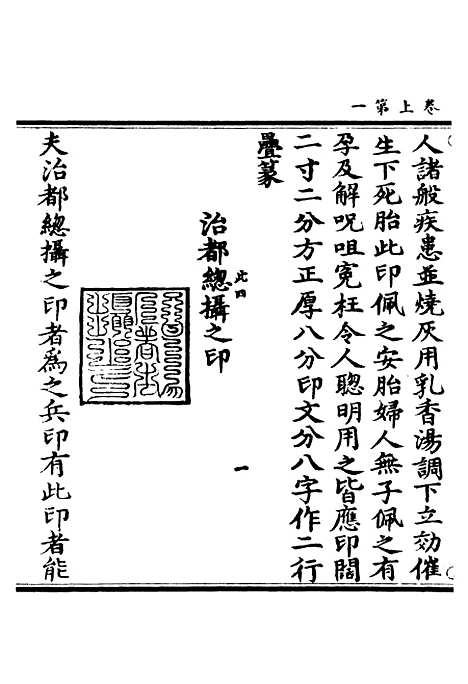 卷上第一
人諸般疾患並燒灰用乳香湯調下立効催
生下死胎此印佩之安胎婦人無子佩之有
孕及解呪咀寃枉令人聰明用之皆應印闊
二寸二分方正厚八分印文分八字作二行
疊篆
治都總攝之印
此四
一
夫治都總攝之印者為之兵印有此印者能